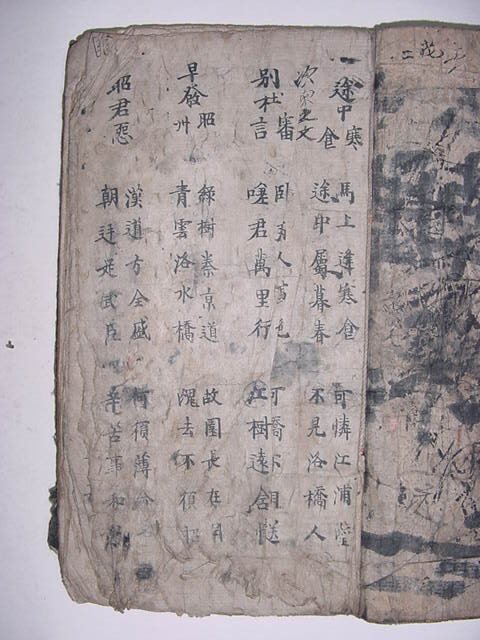 途中寒食
馬上逢寒食 可憐江浦望
途中屬暮春 不見洛橋人
別杜審言
臥 人 可橋不相送
嗟君萬里行 江樹遠含
早發昭州
綠樹秦京道 故園長在目
青雲洛水橋 魂去不須招
昭君怨
漢道方全盛 何須薄命
朝廷足武臣 辛苦事和